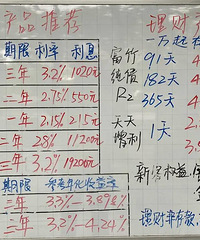 产品推荐
期限 利率 利息
三年 3.2% 1020元
二年 2.75% 550元
一年 2.15% 215元
二年 2.8% 11200元
三年 3.2% 19200元
期限 参考年化收益率
三年 3.3%-3.898%
三年 3.2%-4.24%
理财
一万起
富竹 91天
纯债 182天
R2 365天
天天 1天
增利
新客权益
理财非存款